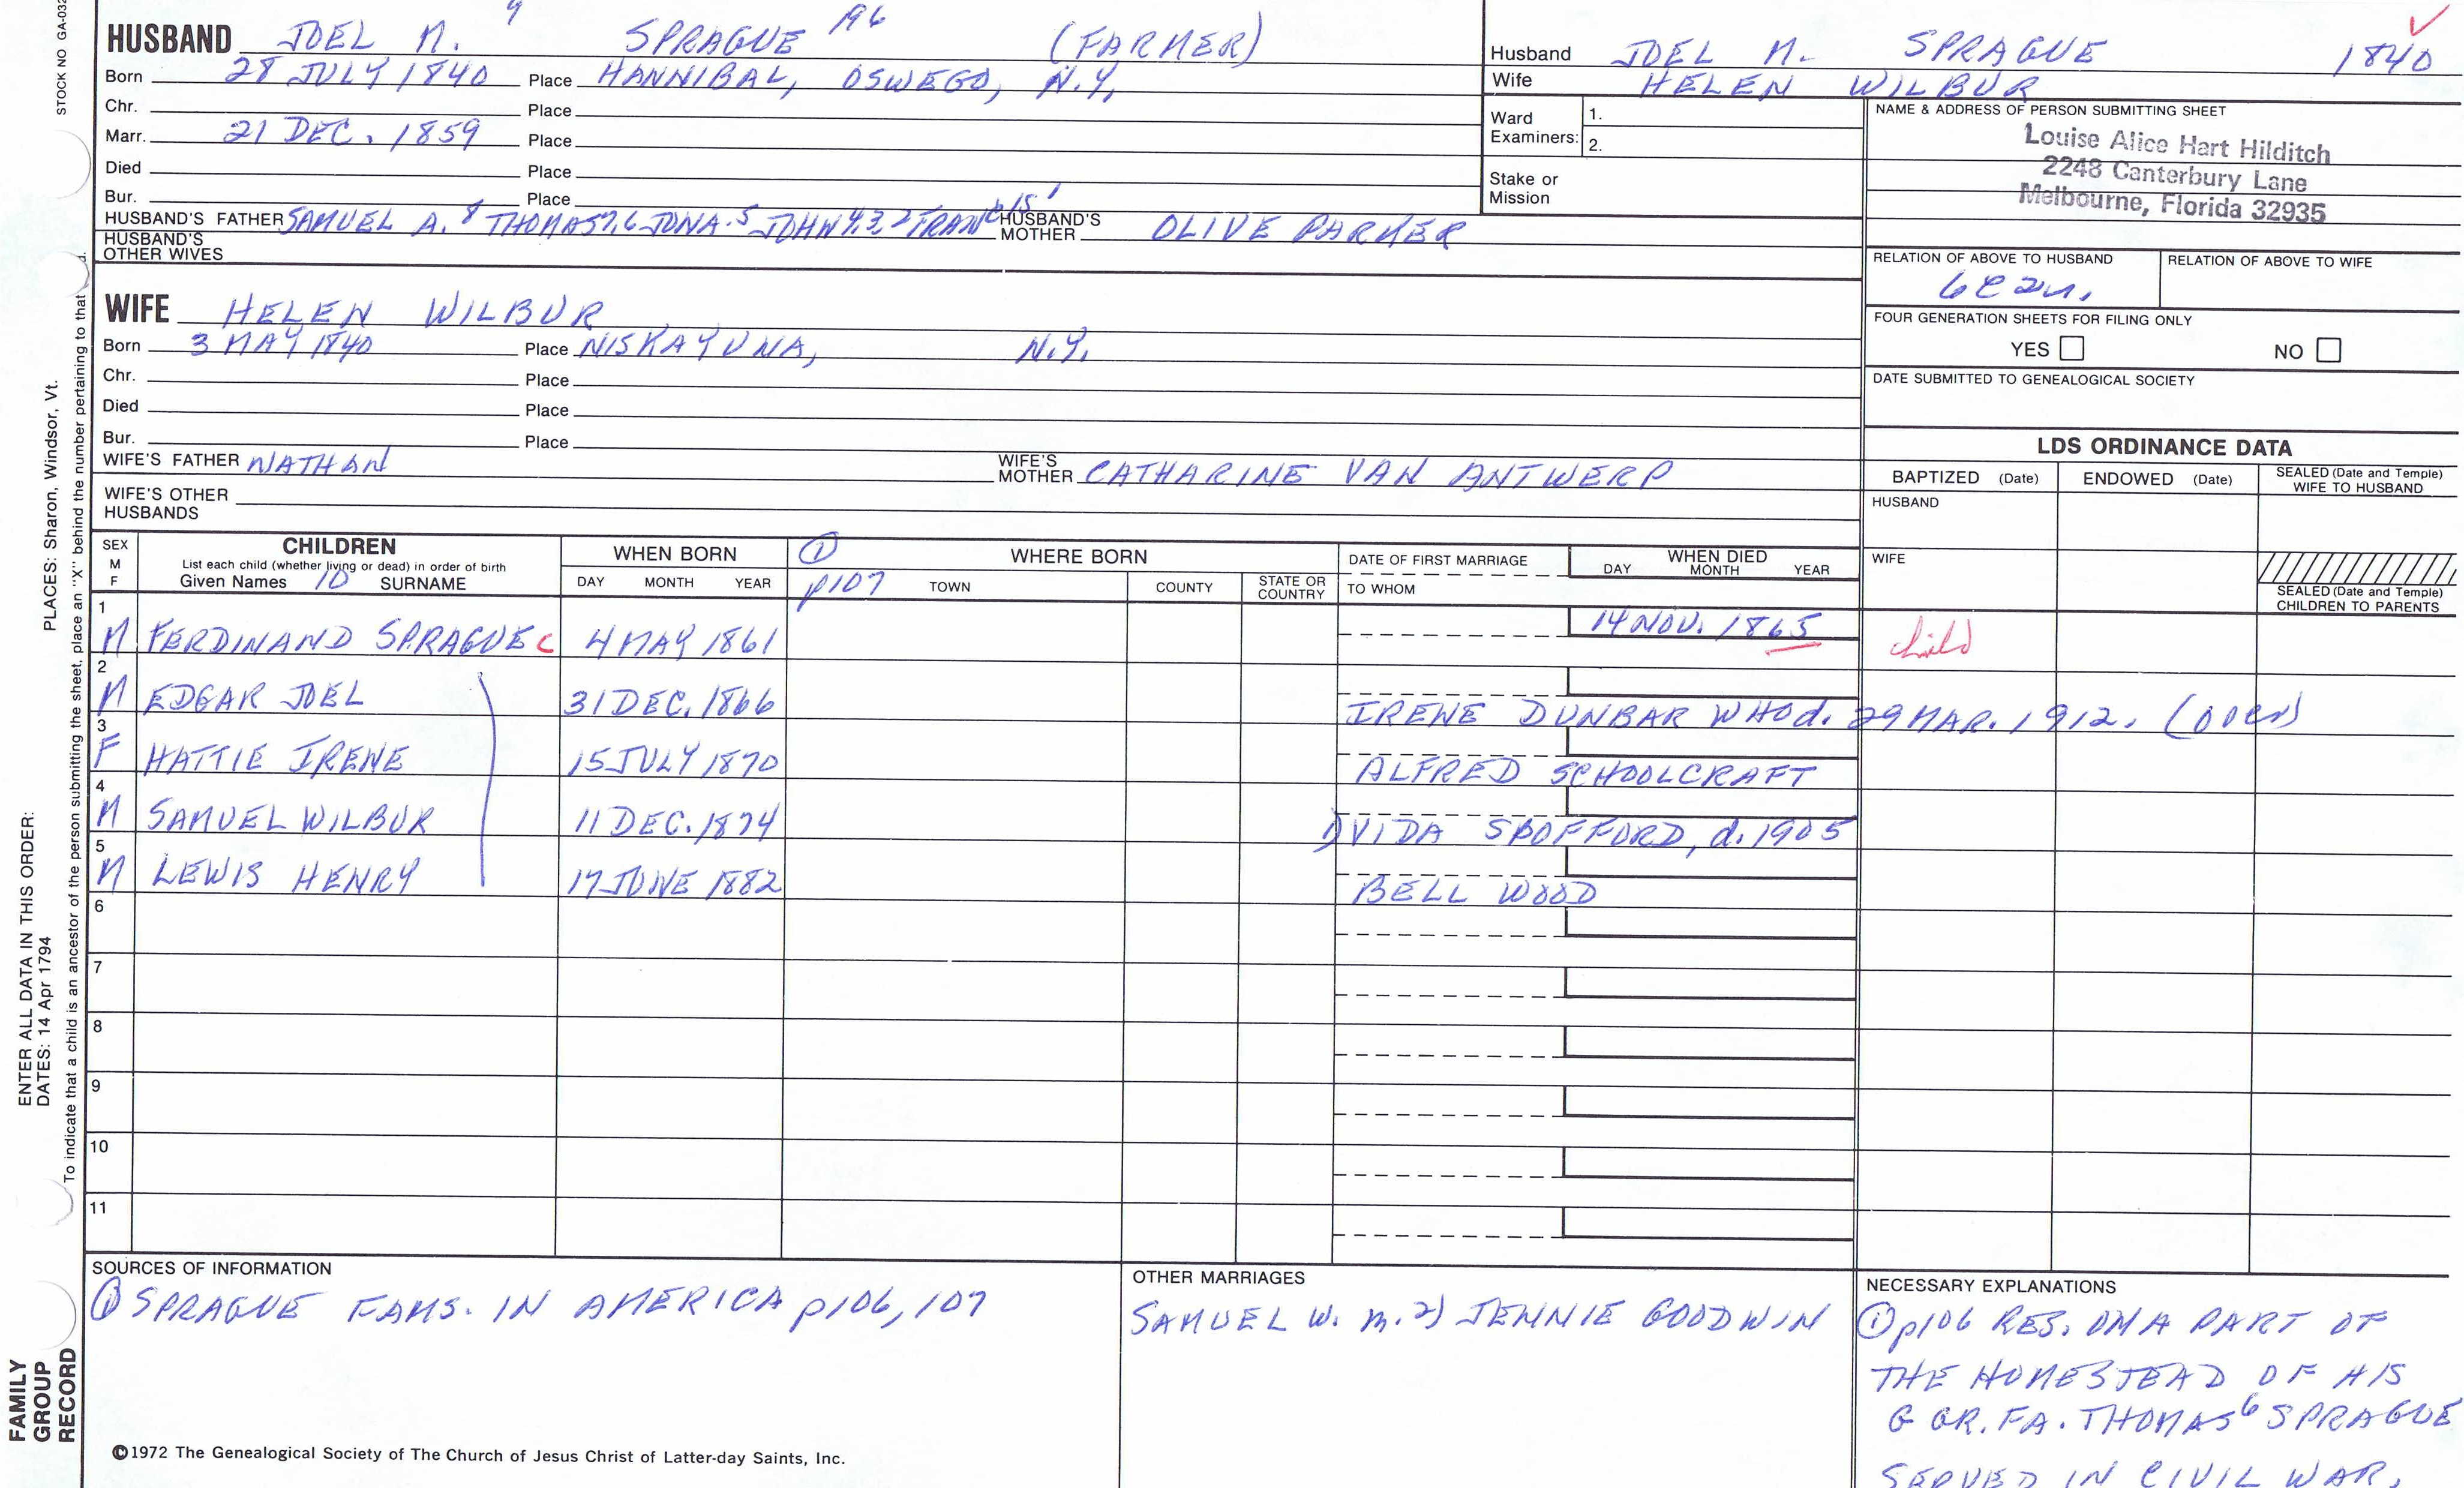 STOCK NO GA-032
9 196
HUSBAND JOEL M. SPRAGUE (FARMER)
Born 28 JULY 1840 Place HANNIBAL, OSWEGO, N.Y.
Chr. Place
Marr. 21 DEC. 1859 Place
Died Place
Bur. Place
HUSBAND'S FATHER SAMUEL A. 8 THOMAS 7,6 JONA. 5 JOHN 4,3,2 FRANCIS 1 HUSBAND'S MOTHER OLIVE PARKER
HUSBAND'S OTHER WIVES
Husband JOEL M. SPRAGUE 1840
Wife HELEN WILBUR
Ward Examiners: 1.
2.
Stake or Mission
NAME & ADDRESS OF PERSON SUBMITTING SHEET
Louise Alice Hart Hilditch
2248 Canterbury Lane
Melbourne, Florida 32935
RELATION OF ABOVE TO HUSBAND RELATION OF ABOVE TO WIFE
FOUR GENERATION SHEETS FOR FILING ONLY
YES NO
DATE SUBMITTED TO GENEALOGICAL SOCIETY
WIFE HELEN WILBUR
Born 3 MAY 1840 Place NISKAYUNA, N.Y.
Chr. Place
Died Place
Bur. Place
WIFE'S FATHER NATHAN WIFE'S MOTHER CATHARINE VAN ANTWERP
WIFE'S OTHER HUSBANDS
LDS ORDINANCE DATA
BAPTIZED (Date) ENDOWED (Date) SEALED (Date and Temple) WIFE TO HUSBAND
HUSBAND
WIFE
SEALED (Date and Temple) CHILDREN TO PARENTS
SEX M F CHILDREN WHEN BORN 1 WHERE BORN DATE OF FIRST MARRIAGE WHEN DIED
List each child (whether living or dead) in order of birth
Given Names 10 SURNAME DAY MONTH YEAR p107 TOWN COUNTY STATE OR COUNTRY TO WHOM DAY MONTH YEAR
1 M FERDINAND SPRAGUE C 4 MAY 1861 14 NOV. 1865 child
2 M EDGAR JOEL 31 DEC. 1866 IRENE DUNBAR WHO d. 29 MAR. 1912. (OVER)
3 F HATTIE IRENE 15 JULY 1870 ALFRED SCHOOLCRAFT
4 M SAMUEL WILBUR 11 DEC. 1874 1) VIDA SPOFFORD, d. 1905
5 M LEWIS HENRY 17 JUNE 1882 BELL WOOD
6
7
8
9
10
11
SOURCES OF INFORMATION
① SPRAGUE FAMS. IN AMERICA p106, 107
OTHER MARRIAGES
SAMUEL W. m. 2) JENNIE GOODWIN
NECESSARY EXPLANATIONS
① p106 RES. ON A PART OF
THE HOMESTEAD OF HIS
G GR. FA. THOMAS 6 SPRAGUE
SERVED IN CIVIL WAR.
©1972 The Genealogical Society of The Church of Jesus Christ of Latter-day Saints, Inc.
FAMILY
GROUP
RECORD
ENTER ALL DATA IN THIS ORDER:
DATES: 14 Apr 1794
PLACES: Sharon, Windsor, Vt.
To indicate that a child is an ancestor of the person submitting the sheet, place an "X" behind the number pertaining to that d.